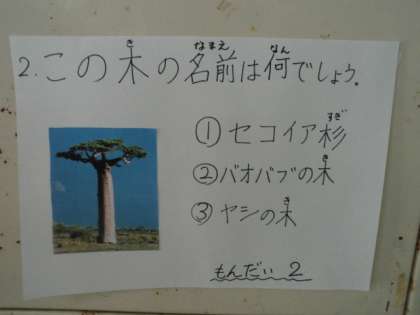 2.この木の名前は何でしょう。
①セコイア杉
②バオバブの木
③ヤシの木
もんだい 2